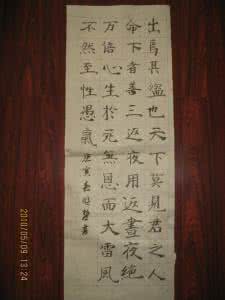 出焉其盜也天下莫見君之人
命下者善三返夜用返晝夜絕
万倍心生於死無恩而大雷風
不然至性愚氣 庚寅春
2010/05/09 13:24